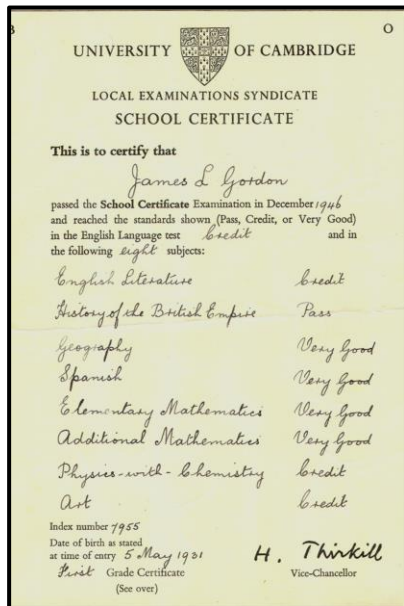 B O
UNIVERSITY OF CAMBRIDGE
LOCAL EXAMINATIONS SYNDICATE
SCHOOL CERTIFICATE
This is to certify that
James L Gordon
passed the School Certificate Examination in December 1946
and reached the standards shown (Pass, Credit, or Very Good)
in the English Language test Credit and in
the following eight subjects:
English Literature Credit
History of the British Empire Pass
Geography Very Good
Spanish Very Good
Elementary Mathematics Very Good
Additional Mathematics Very Good
Physics-with-Chemistry Credit
Art Credit
Index number 7955
Date of birth as stated
at time of entry 5 May 1931
First Grade Certificate
(See over)
H. Thirkill
Vice-Chancellor